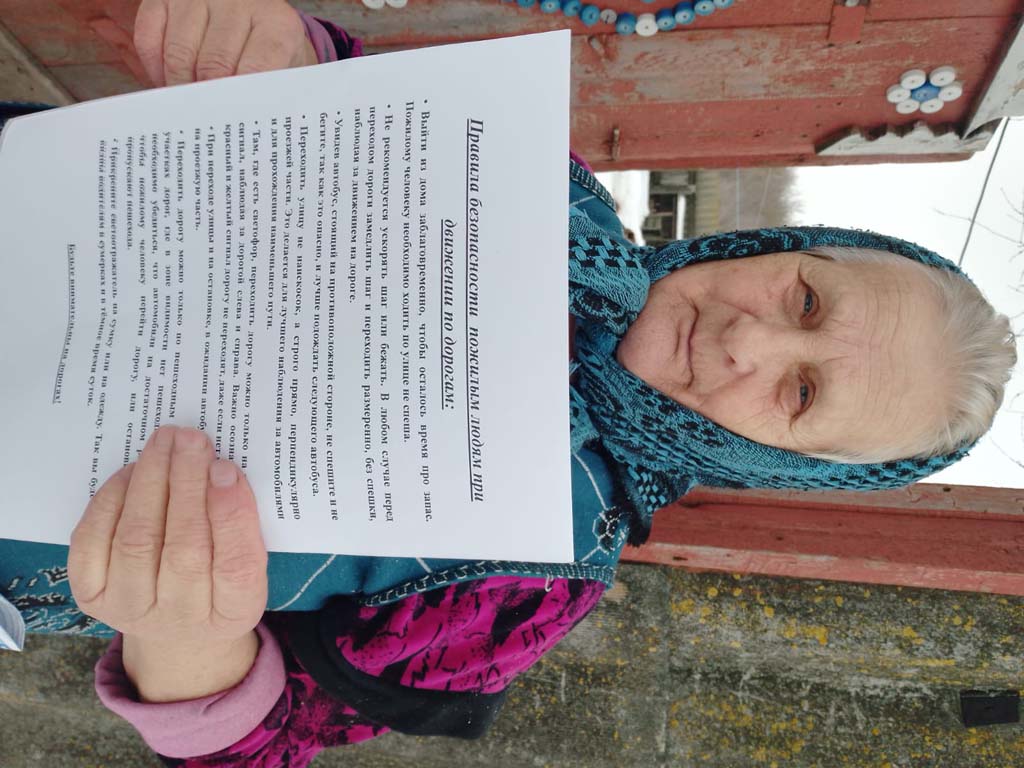 Правила безопасности пожилым людям при
движении по дорогам:
• Выйти из дома заблаговременно, чтобы осталось время про запас.
Пожилому человеку необходимо ходить по улице не спеша.
• Не рекомендуется ускорить шаг или бежать. В любом случае перед
переходом дороги замедлить шаг и переходить размеренно, без спешки,
наблюдая за движением на дороге.
• Увидев автобус, стоящий на противоположной стороне, не спешите и не
бегите, так как это опасно, и лучше подождать следующего автобуса.
• Переходить улицу не наискосок, а строго прямо, перпендикулярно
проезжей части. Это делается для лучшего наблюдения за автомобилями
и для прохождения наименьшего пути.
• Там, где есть светофор, переходить дорогу можно только на
сигнал, наблюдая за дорогой слева и справа. Важно
красный и желтый сигнал дорогу не переходят, даже если нет
• При переходе улицы и на остановке, в ожидании
на проезжую часть.
• Переходить дорогу можно только по пешеходным
участках дорог, где в зоне видимости нет
необходимо убедиться, что автомобили на достаточном
чтобы пожилому человеку перейти дорогу, или
пропускают пешехода.
• Прикрепите светоотражатель на сумку или на одежду. Так вы
видны водителям в сумерках и в тёмное время суток.
Будьте внимательны на дорогах!